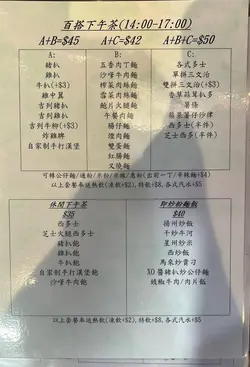 百搭下午茶(14:00-17:00)
A+B=$45 A+C=$42 A+B+C=$50
A: B: C:
豬扒 五香肉丁麵 各式多士
雞扒 沙嗲牛肉麵 單拼三文治
牛扒(+$3) 榨菜肉絲麵 雙拼三文治(+$3)
雞中翼 雪菜肉絲麵 香草蒜茸扒多
吉列豬扒 鮑片火腿麵 薯條
吉列雞扒 午餐肉麵 蘋果薯仔沙律
吉列牛柳(+$3) 腸仔麵 西多士(半件)
炸雞脾 煙肉麵 芝士西多士(半件)
自家制手打漢堡 雙蛋麵
紅腸麵
叉燒麵
可轉公仔麵/通粉/米粉/米線/意粉(出前一丁/辛辣麵+$4)
以上套餐奉送熱飲(凍飲+$2), 特飲+$8, 各式汽水+$5
休閒下午茶
$35
西多士
芝士火腿西多士
豬扒飽
雞扒飽
牛扒飽
自家制手打漢堡飽
沙嗲牛肉飽
即炒粉麵飯
$40
揚州炒飯
干炒牛河
星州炒米
西炒飯
馬來炒貴刁
XO醬豬扒炒公仔麵
豉椒牛肉/肉片飯
以上套餐奉送熱飲(凍飲+$2), 特飲+$8, 各式汽水+$5